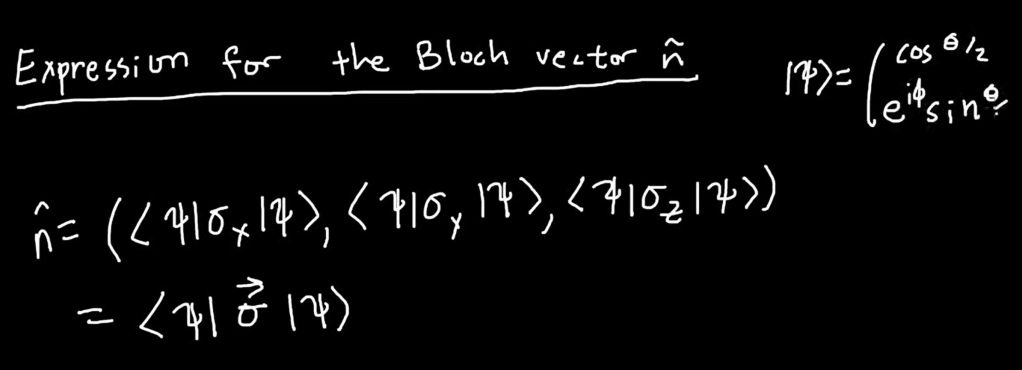 Expression for the Bloch vector n̂
|ψ⟩= (cos θ/2
e^{iϕ} sin θ/
n̂ = (⟨ψ|σ_x|ψ⟩, ⟨ψ|σ_y|ψ⟩, ⟨ψ|σ_z|ψ⟩)
= ⟨ψ|σ⃗|ψ⟩